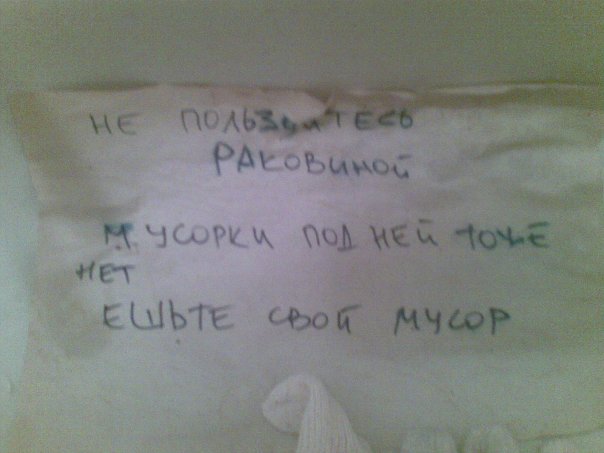 НЕ ПОЛЬЗВИТЕСЬ
РАКОВИНОЙ
МУСОРКИ ПОД НЕЙ ТОЖЕ
НЕТ
ЕШЬТЕ СВОЙ МУСОР